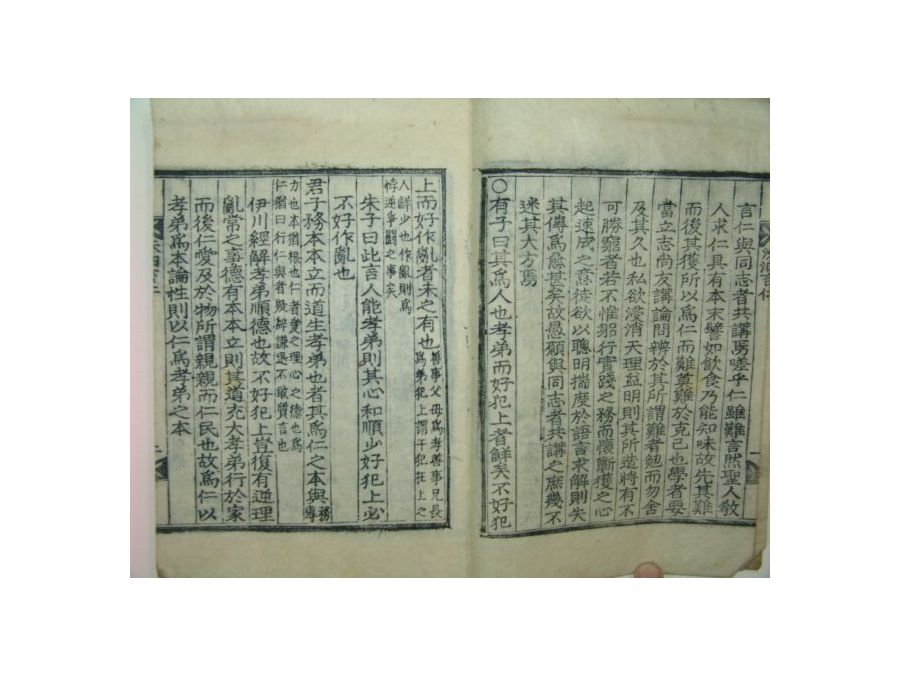 言仁與同志者共講焉嗟乎仁雖難言然聖人教
人求仁具有本末譬如飲食乃能知味故先其難
而後其獲所以爲仁而難莫難於克己也學者要
當立志尚友講論問辨於其所謂難者勉而勿舍
及其久也私欲浸消天理益明則其所造將有不
可勝窮者若不惟躬行實踐之務而懷蘄獲之心
起速成之意徒欲以聰明揣度於語言求解則失
其傳爲愈甚矣故愚願與同志者共講之庶幾不
迷其大方焉
○有子曰其爲人也孝弟而好犯上者鮮矣不好犯
上而好作亂者未之有也善事父母爲孝善事兄長
爲弟犯上謂干犯在上之
人鮮少也作亂則爲
悖逆爭鬪之事矣
朱子曰此言人能孝弟則其心和順少好犯上必
不好作亂也
君子務本本立而道生孝弟也者其爲仁之本與務
專
力也本猶根也仁者愛之理心之德也爲
仁猶曰行仁與者疑辭謙退不敢質言也
伊川經解孝弟順德也故不好犯上豈復有逆理
亂常之事德有本本立則其道充大孝弟行於家
而後仁愛及於物所謂親親而仁民也故爲仁以
孝弟爲本論性則以仁爲孝弟之本